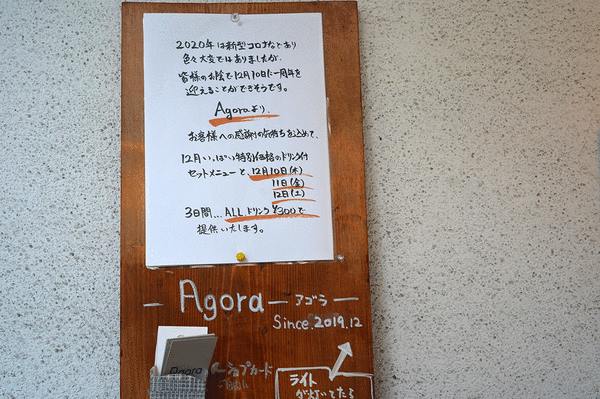 2020年は新型コロナなどあり
色々大変ではありましたが、
皆様のお陰で12月10日に一周年を
迎えることができそうです。
Agoraより、
お客様への感謝の気持ちを込めて、
12月いっぱい特別価格のドリンク付
セットメニューと、12月10日(木)
11日(金)
12日(土)
3日間...ALLドリンク¥300で
提供いたします。
Agora アゴラ
Since.2019.12
Agora
ショップカード
ライト